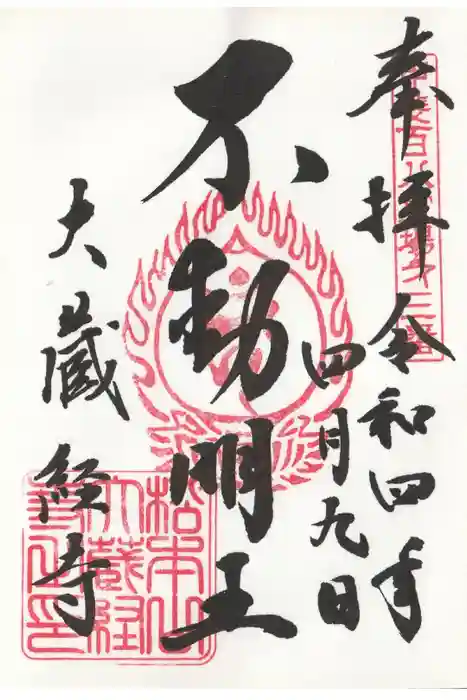 奉拝
令和四年
四月九日
不動明王
大蔵経寺
松本山
大蔵経